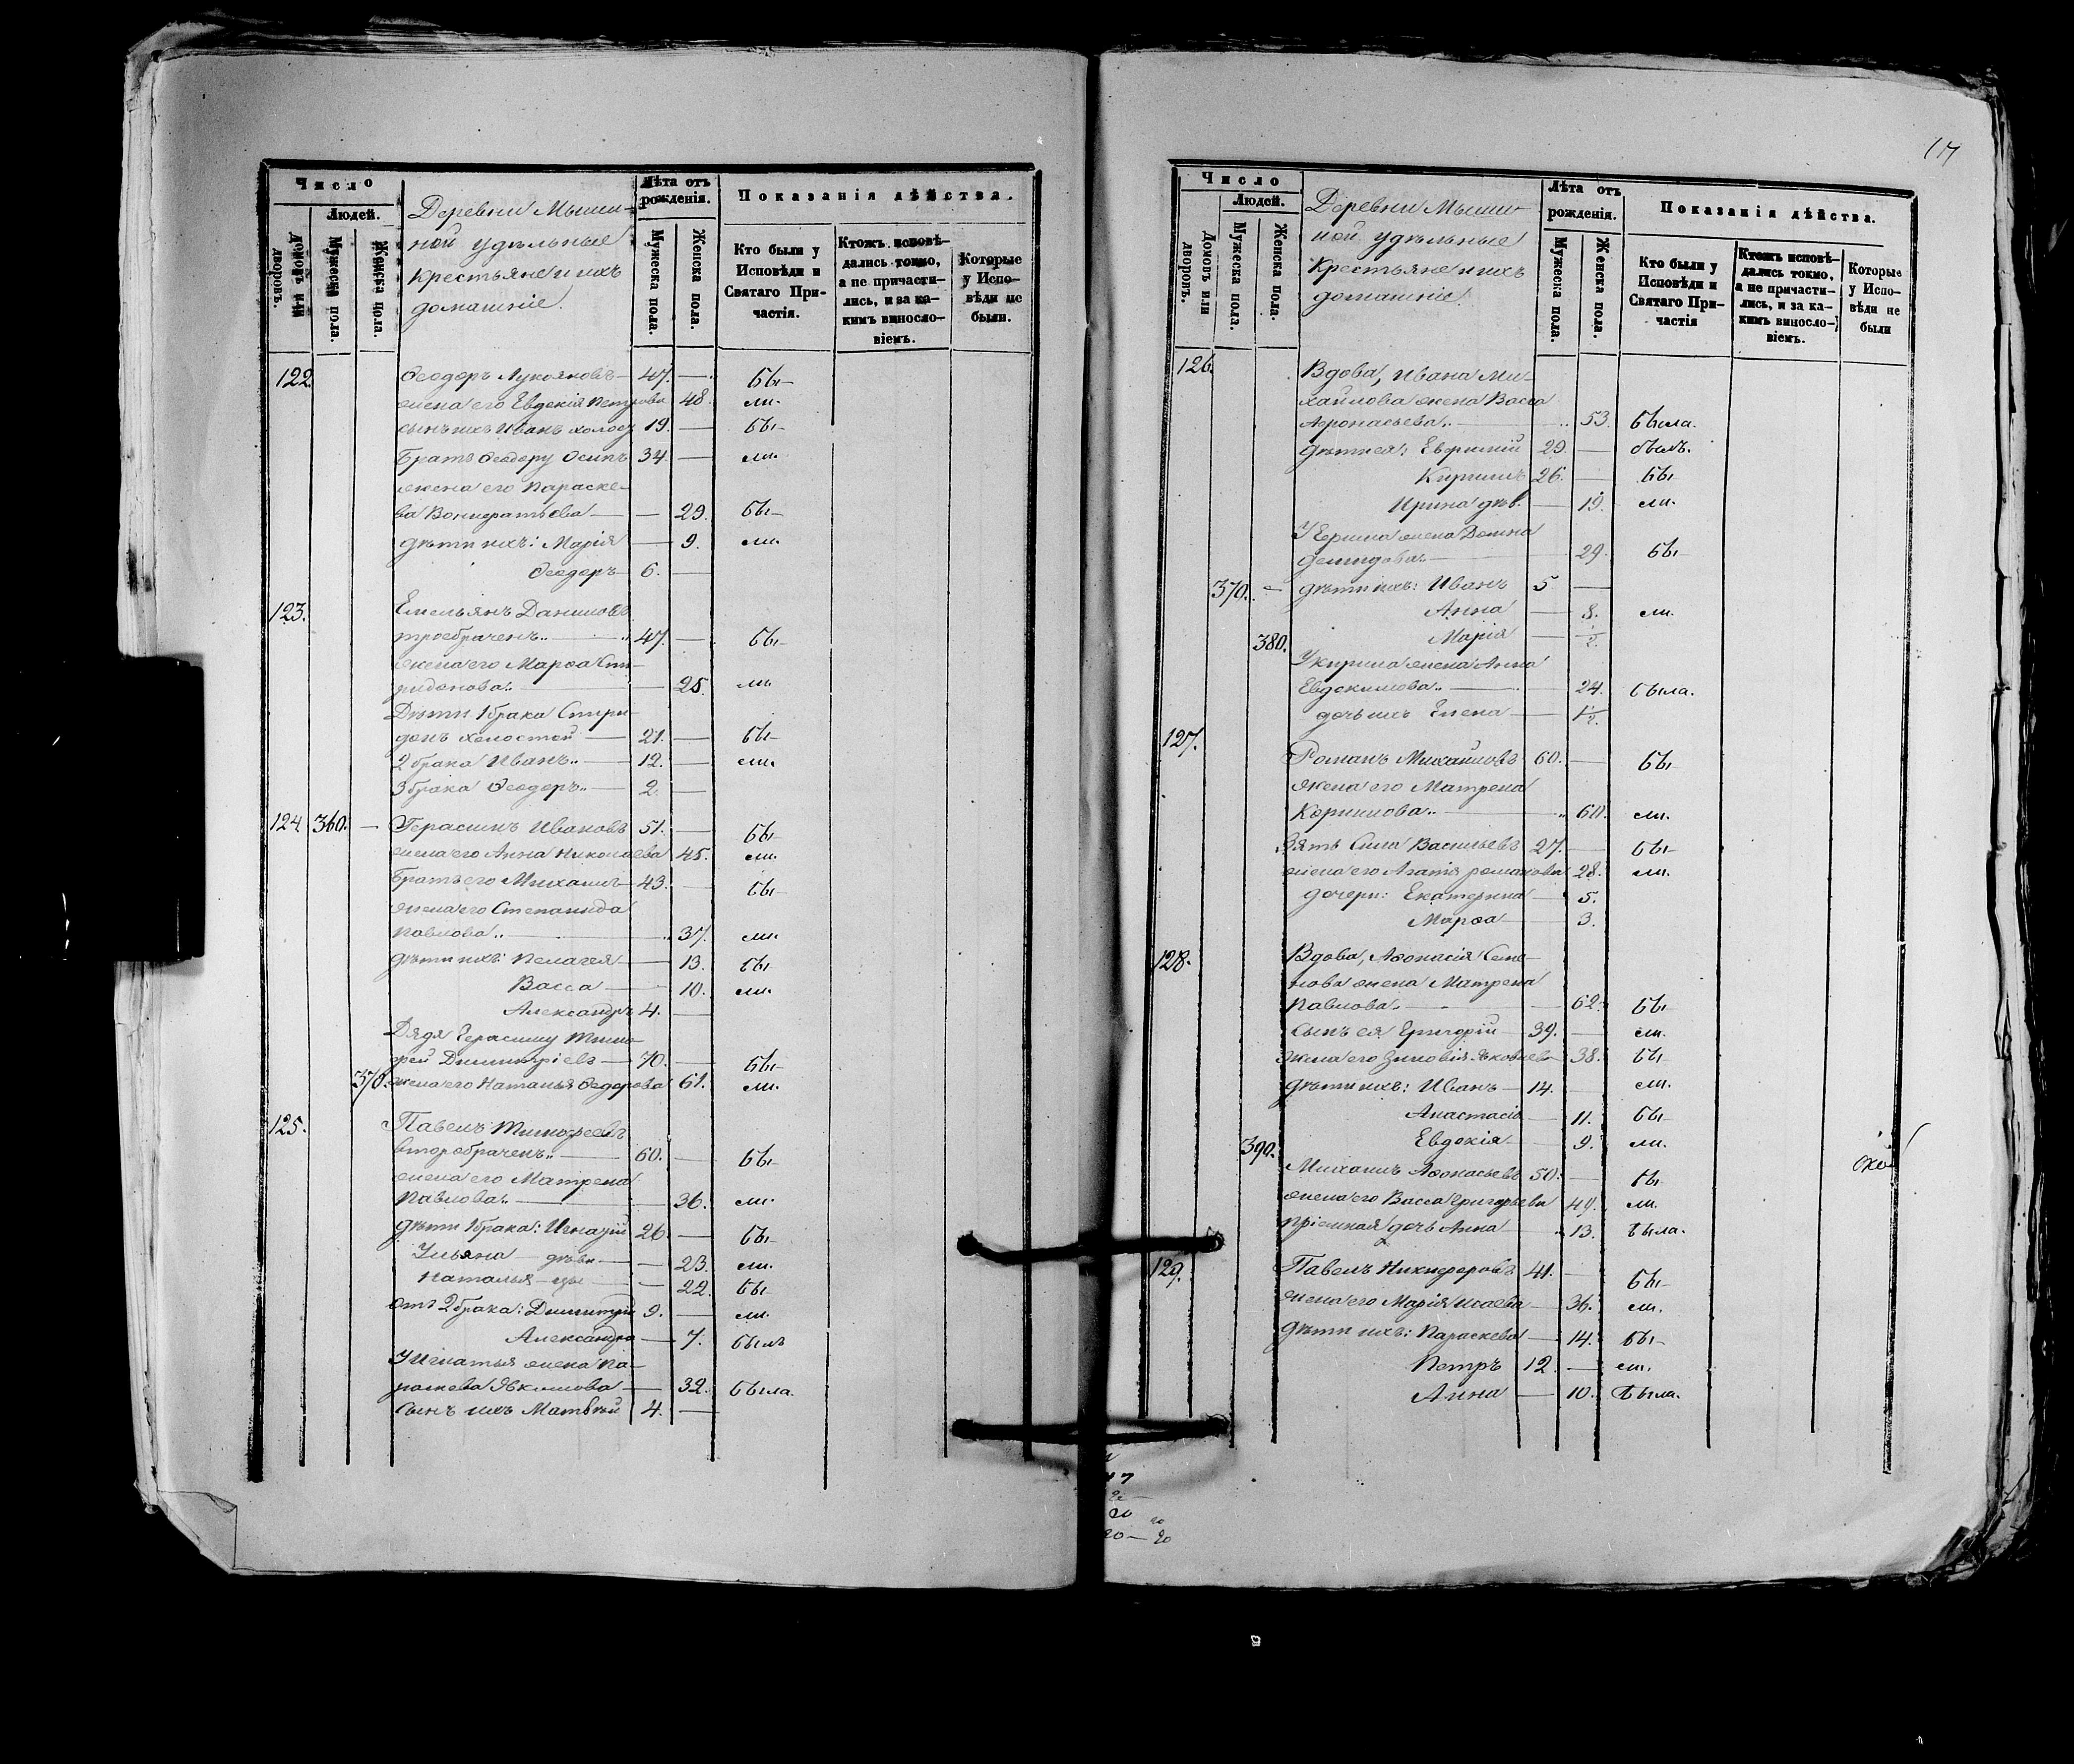 Число
Людей.
Домовъ или дворовъ.
Мужеска пола.
Женска пола.
Деревни Мыши-
ной удѣльные
крестьяне и ихъ
домашніе.
Лѣта отъ рожденія.
Мужеска пола.
Женска пола.
Показанія дѣйства.
Кто были у Исповѣди и Святаго Причастія.
Ктожъ исповѣдались токмо, а не причастились, и за какимъ винословіемъ.
Которые у Исповѣди не были.
122. Ѳеодоръ Лукояновъ 47. — бы-
жена его Евдокія Петрова 48. ли.
сынъ ихъ Иванъ холост 19. — бы-
Братъ Ѳеодору Осипъ 34. — ли.
жена его Параске-
ва Вонифатьева — 29. бы-
дѣти ихъ: Марія — 9. ли.
Ѳеодоръ 6. —
123. Емельянъ Даниловъ
троебраченъ.. 47. — бы-
жена его Марѳа Спи-
ридонова.. — 25. ли.
Дѣти 1 брака Спири-
донъ холостой — 21. — бы-
2 брака Иванъ.. — 12. — ли.
3 брака Ѳеодоръ.. — 2. —
124. 360. — Герасимъ Ивановъ 51. — бы-
жена его Анна Николаева 45. ли.
Братъ его Михаилъ 43. — бы-
жена его Степанида
Павлова.. 37. ли.
дѣти ихъ: Пелагея — 13. бы-
Васса — 10. ли.
Александръ 4. —
Дядя Герасиму Тимо-
фей Димитріевъ — 70. — бы-
370. жена его Наталья Ѳедорова 61. ли.
125. Павелъ Тимофеевъ
второбраченъ.. 60. — бы-
жена его Матрена
Павлова.. 36. ли.
дѣти 1 брака: Игнатій 26. — бы-
Ульяна — дѣвк — 23. ли.
Наталья — — 22. бы-
отъ 2 брака: Димитрій 9. — ли.
Александра — 7. былъ
У Игнатья жена Па-
раскева Явкимова — 32. была.
Сынъ ихъ Матвѣй 4. —
17
Число
Людей.
Домовъ или дворовъ.
Мужеска пола.
Женска пола.
Деревни Мыши-
ной удѣльные
Крестьяне и ихъ
домашніе.
Лѣта отъ рожденія.
Мужеска пола.
Женска пола.
Показанія дѣйства.
Кто были у Исповѣди и Святаго Причастія
Ктожъ исповѣдались токмо, а не причастились, и за какимъ винословіемъ.
Которые у Исповѣди не были
126. Вдова, Ивана Ми-
хайлова жена Васса
Афонасьева.. 53. была.
дѣти ея: Евфимій 29. — былъ.
Кирилъ 26. — бы-
Ирина дѣв. — 19. ли.
У Ефима жена Домна
Демидова — 29. бы-
370. — дѣти ихъ: Иванъ 5 —
Анна — 8. ли.
380. Марія — 1/2.
У Кирила жена Анна
Евдокимова.. — 24. была.
дочь ихъ Елена — 1 1/2.
127. Романъ Михайловъ 60. — бы-
жена его Матрена
Корнилова.. 60. ли.
Зять Сила Васильевъ 27. — бы-
жена его Агатія Романова 28. ли.
дочери: Екатерина — 5.
Марѳа — 3.
128. Вдова, Аѳонасія Семе-
нова жена Матрена
Павлова.. — 62. бы-
Сынъ ея Григорій 39. — ли.
жена его Зиновія Яковлева 38. бы-
дѣти ихъ: Иванъ 14. ли.
Анастасія — 11. бы-
390. Евдокія — 9. ли.
Михаилъ Аѳонасьевъ 50. — бы-
жена его Васса Григорьева 49. ли.
пріемная дочь Анна 13. была.
129. Павелъ Никифоровъ 41. — бы-
жена его Марія Исаева — 36. ли.
дѣти ихъ: Параскева — 14. бы-
Петръ 12. — ли.
Анна — 10. была.